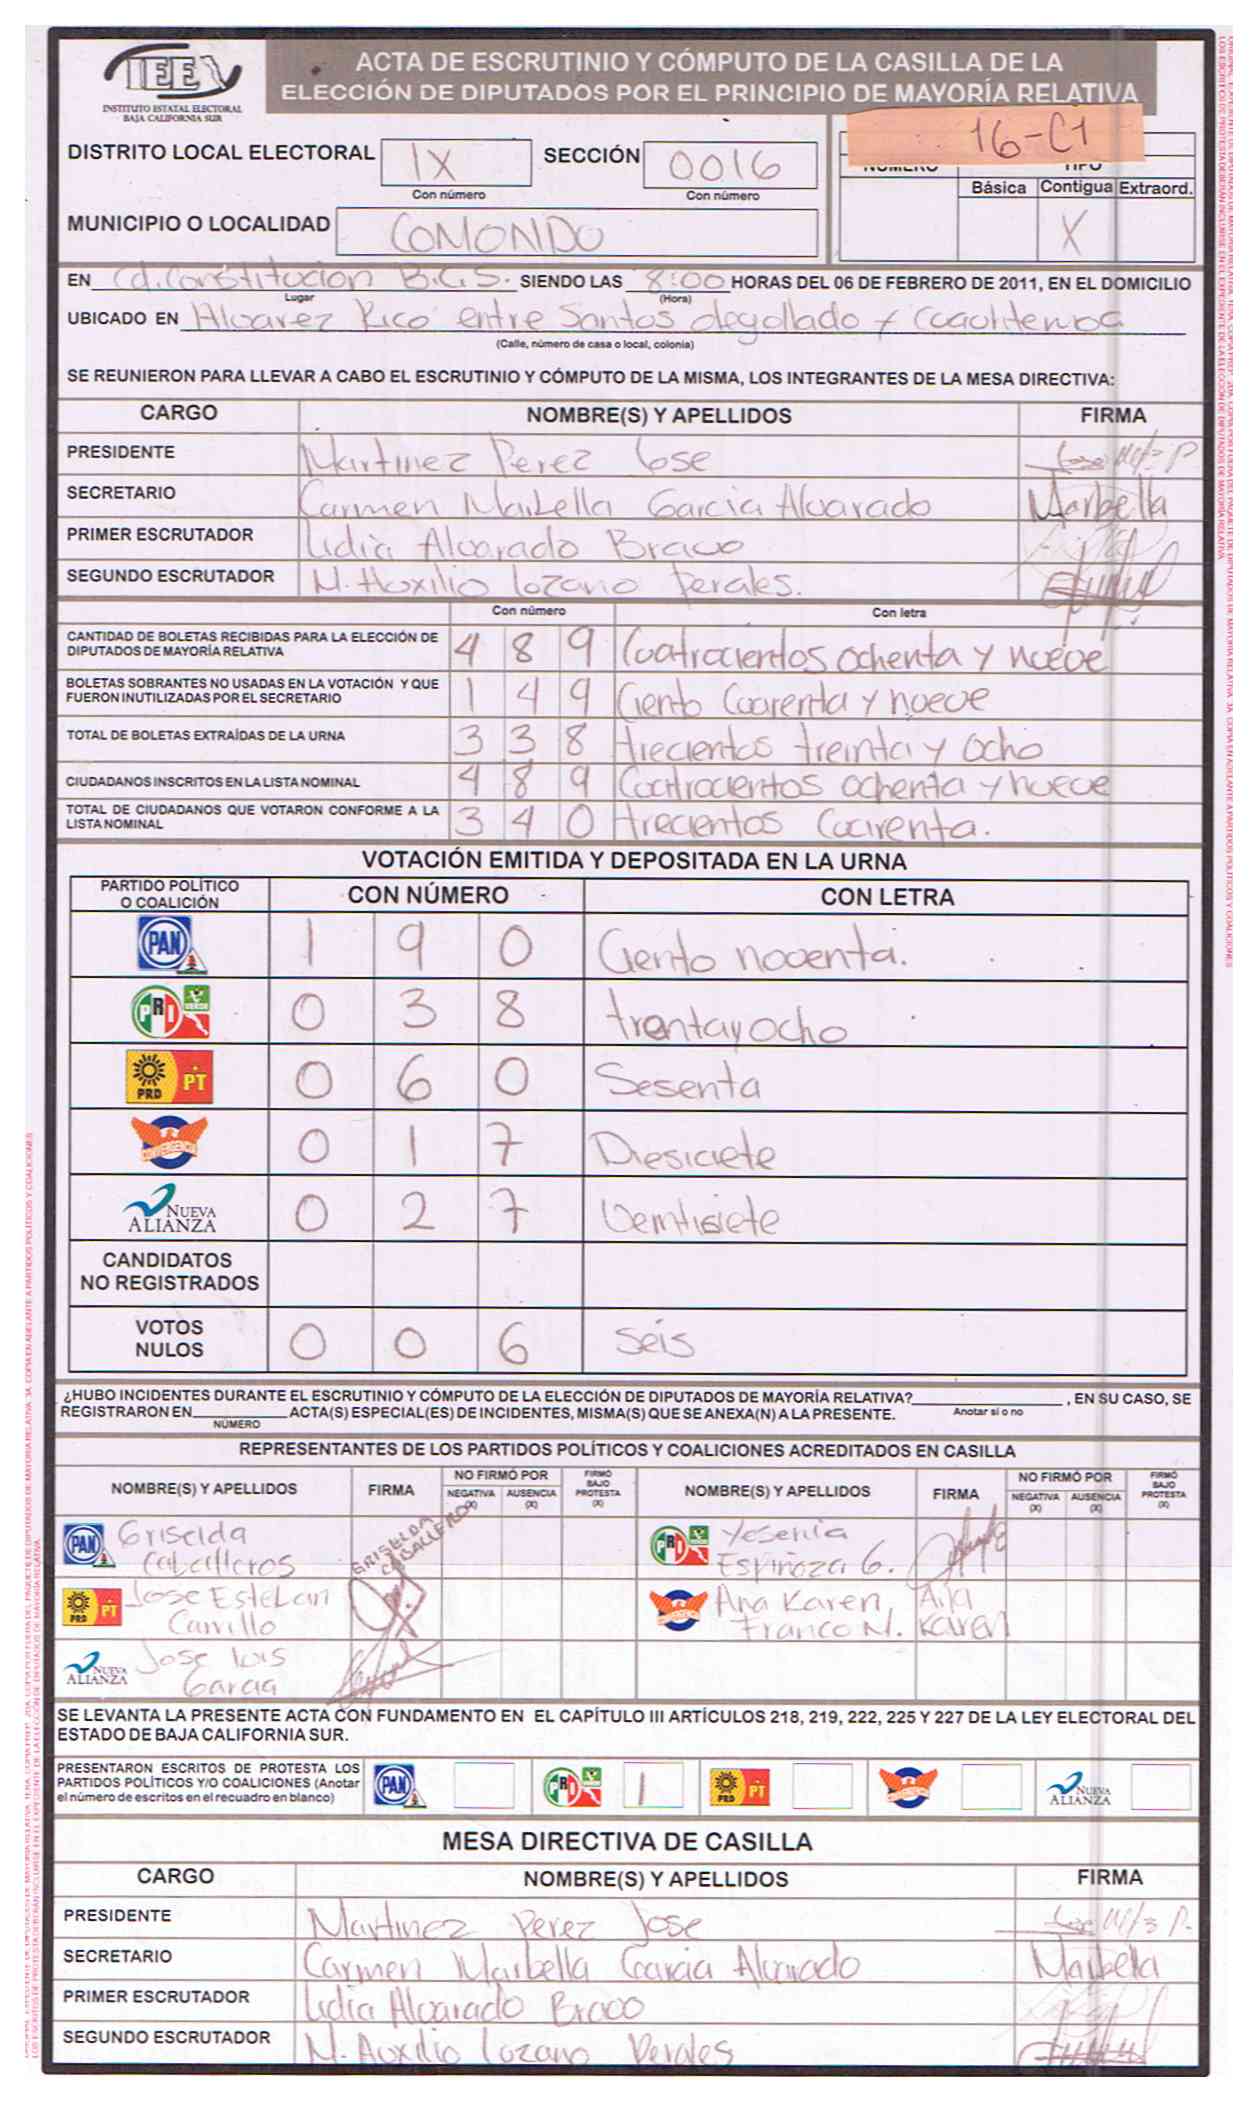 IEEX
INSTITUTO ESTATAL ELECTORAL
BAJA CALIFORNIA SUR
ACTA DE ESCRUTINIO Y CÓMPUTO DE LA CASILLA DE LA
ELECCIÓN DE DIPUTADOS POR EL PRINCIPIO DE MAYORÍA RELATIVA
16-C1
DISTRITO LOCAL ELECTORAL IX SECCIÓN 0016
Con número Con número
NÚMERO TIPO
Básica Contigua Extraord.
X
MUNICIPIO O LOCALIDAD COMONDO
EN Cd. Constitucion B.C.S. SIENDO LAS 8:00 HORAS DEL 06 DE FEBRERO DE 2011, EN EL DOMICILIO
Lugar (Hora)
UBICADO EN Alvarez Rico entre Santos degollado y
(Calle, número de casa o local, colonia)
SE REUNIERON PARA LLEVAR A CABO EL ESCRUTINIO Y CÓMPUTO DE LA MISMA, LOS INTEGRANTES DE LA MESA DIRECTIVA:
CARGO NOMBRE(S) Y APELLIDOS FIRMA
PRESIDENTE Martinez Perez Jose
SECRETARIO Carmen Maibella Garcia Alvarado Marbella
PRIMER ESCRUTADOR Lidia Alvarado Bravo
SEGUNDO ESCRUTADOR M. Auxilio Lozano Perales.
Con número Con letra
CANTIDAD DE BOLETAS RECIBIDAS PARA LA ELECCIÓN DE
DIPUTADOS DE MAYORÍA RELATIVA 4 8 9 Cuatrocientos ochenta y nueve
BOLETAS SOBRANTES NO USADAS EN LA VOTACIÓN Y QUE
FUERON INUTILIZADAS POR EL SECRETARIO 1 4 9 Ciento Cuarenta y nueve
TOTAL DE BOLETAS EXTRAÍDAS DE LA URNA 3 3 8 trecientos treinta y ocho
CIUDADANOS INSCRITOS EN LA LISTA NOMINAL 4 8 9 Cuatrocientos ochenta y nueve
TOTAL DE CIUDADANOS QUE VOTARON CONFORME A LA
LISTA NOMINAL 3 4 0 trecientos Cuarenta.
VOTACIÓN EMITIDA Y DEPOSITADA EN LA URNA
PARTIDO POLÍTICO
O COALICIÓN CON NÚMERO CON LETRA
PAN 1 9 0 Ciento noventa.
PRI VERDE 0 3 8 trentay ocho
PRD PT 0 6 0 Sesenta
CONVERGENCIA 0 1 7 Diesiciete
NUEVA ALIANZA 0 2 7 Ventisiete
CANDIDATOS
NO REGISTRADOS
VOTOS
NULOS 0 0 6 Seis
¿HUBO INCIDENTES DURANTE EL ESCRUTINIO Y CÓMPUTO DE LA ELECCIÓN DE DIPUTADOS DE MAYORÍA RELATIVA? , EN SU CASO, SE
Anotar sí o no
REGISTRARON EN ACTA(S) ESPECIAL(ES) DE INCIDENTES, MISMA(S) QUE SE ANEXA(N) A LA PRESENTE.
NÚMERO
REPRESENTANTES DE LOS PARTIDOS POLÍTICOS Y COALICIONES ACREDITADOS EN CASILLA
NOMBRE(S) Y APELLIDOS FIRMA NO FIRMÓ POR FIRMÓ BAJO PROTESTA (X) NOMBRE(S) Y APELLIDOS FIRMA NO FIRMÓ POR FIRMÓ BAJO PROTESTA (X)
NEGATIVA (X) AUSENCIA (X) NEGATIVA (X) AUSENCIA (X)
PAN Griselda Caballeros GRISELDA CABALLERO PRI Yesenia Espinoza G.
PRD PT Jose Esteban Carrillo CONVERGENCIA Ana Karen Franco M. Ana Karen
NUEVA ALIANZA Jose Luis Garcia
SE LEVANTA LA PRESENTE ACTA CON FUNDAMENTO EN EL CAPÍTULO III ARTÍCULOS 218, 219, 222, 225 Y 227 DE LA LEY ELECTORAL DEL
ESTADO DE BAJA CALIFORNIA SUR.
PRESENTARON ESCRITOS DE PROTESTA LOS
PARTIDOS POLÍTICOS Y/O COALICIONES (Anotar
el número de escritos en el recuadro en blanco) PAN PRI 1 PRD PT CONVERGENCIA NUEVA ALIANZA
MESA DIRECTIVA DE CASILLA
CARGO NOMBRE(S) Y APELLIDOS FIRMA
PRESIDENTE Martinez Perez Jose
SECRETARIO Carmen Marbella Garcia Alvarado Marbella
PRIMER ESCRUTADOR Lidia Alvarado Bravo
SEGUNDO ESCRUTADOR M. Auxilio Lozano Perales